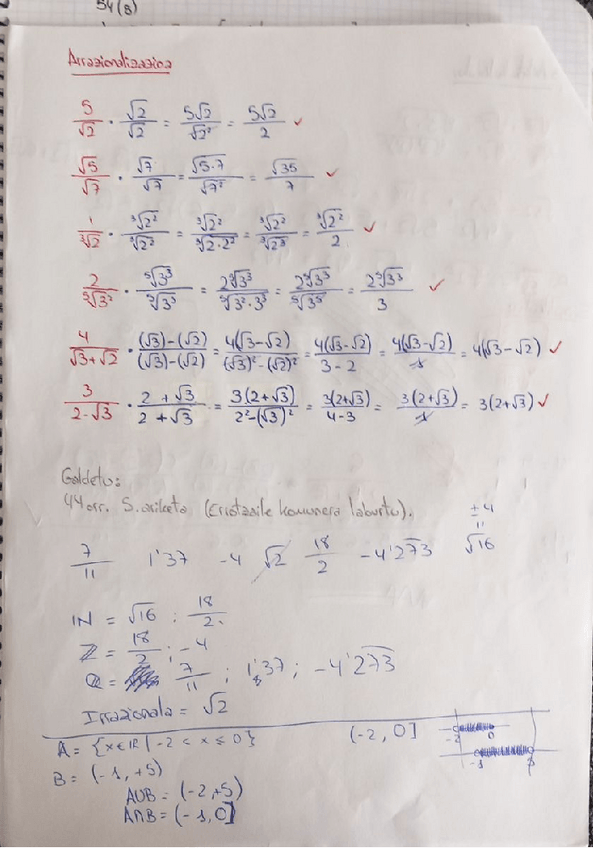 54(B)
Arrazionalizazioa
5/√2 · √2/√2 = 5√2/√2² = 5√2/2 ✓
√5/√7 · √7/√7 = √5·7/√7² = √35/7 ✓
1/∛2 · ∛2²/∛2² = ∛2²/∛2·2² = ∛2²/∛2³ = ∛2²/2 ✓
2/⁵√3² · ⁵√3³/⁵√3³ = 2⁵√3³/⁵√3²·3³ = 2⁵√3³/⁵√3⁵ = 2⁵√3³/3 ✓
4/√3+√2 · (√3)-(√2)/(√3)-(√2) = 4(√3-√2)/(√3)²-(√2)² = 4(√3-√2)/3-2 = 4(√3-√2)/1 = 4(√3-√2) ✓
3/2-√3 · 2+√3/2+√3 = 3(2+√3)/2²-(√3)² = 3(2+√3)/4-3 = 3(2+√3)/1 = 3(2+√3) ✓
Galdetu:
44 orr. 5. ariketa (Errotzaile komunera laburtu).
7/11 1'37 -4 √2 18/2 -4'273 √16 = ±4
IN = √16 ; 18/2
Z = 18/2 ; -4
Q = 7/11 ; 1'37 ; -4'273
Irrazionala = √2
A = {x∈IR | -2 < x ≤ 0} (-2, 0] -2 0
B = (-1, +5) -1
AUB = (-2,+5)
A∩B = (-1, 0]